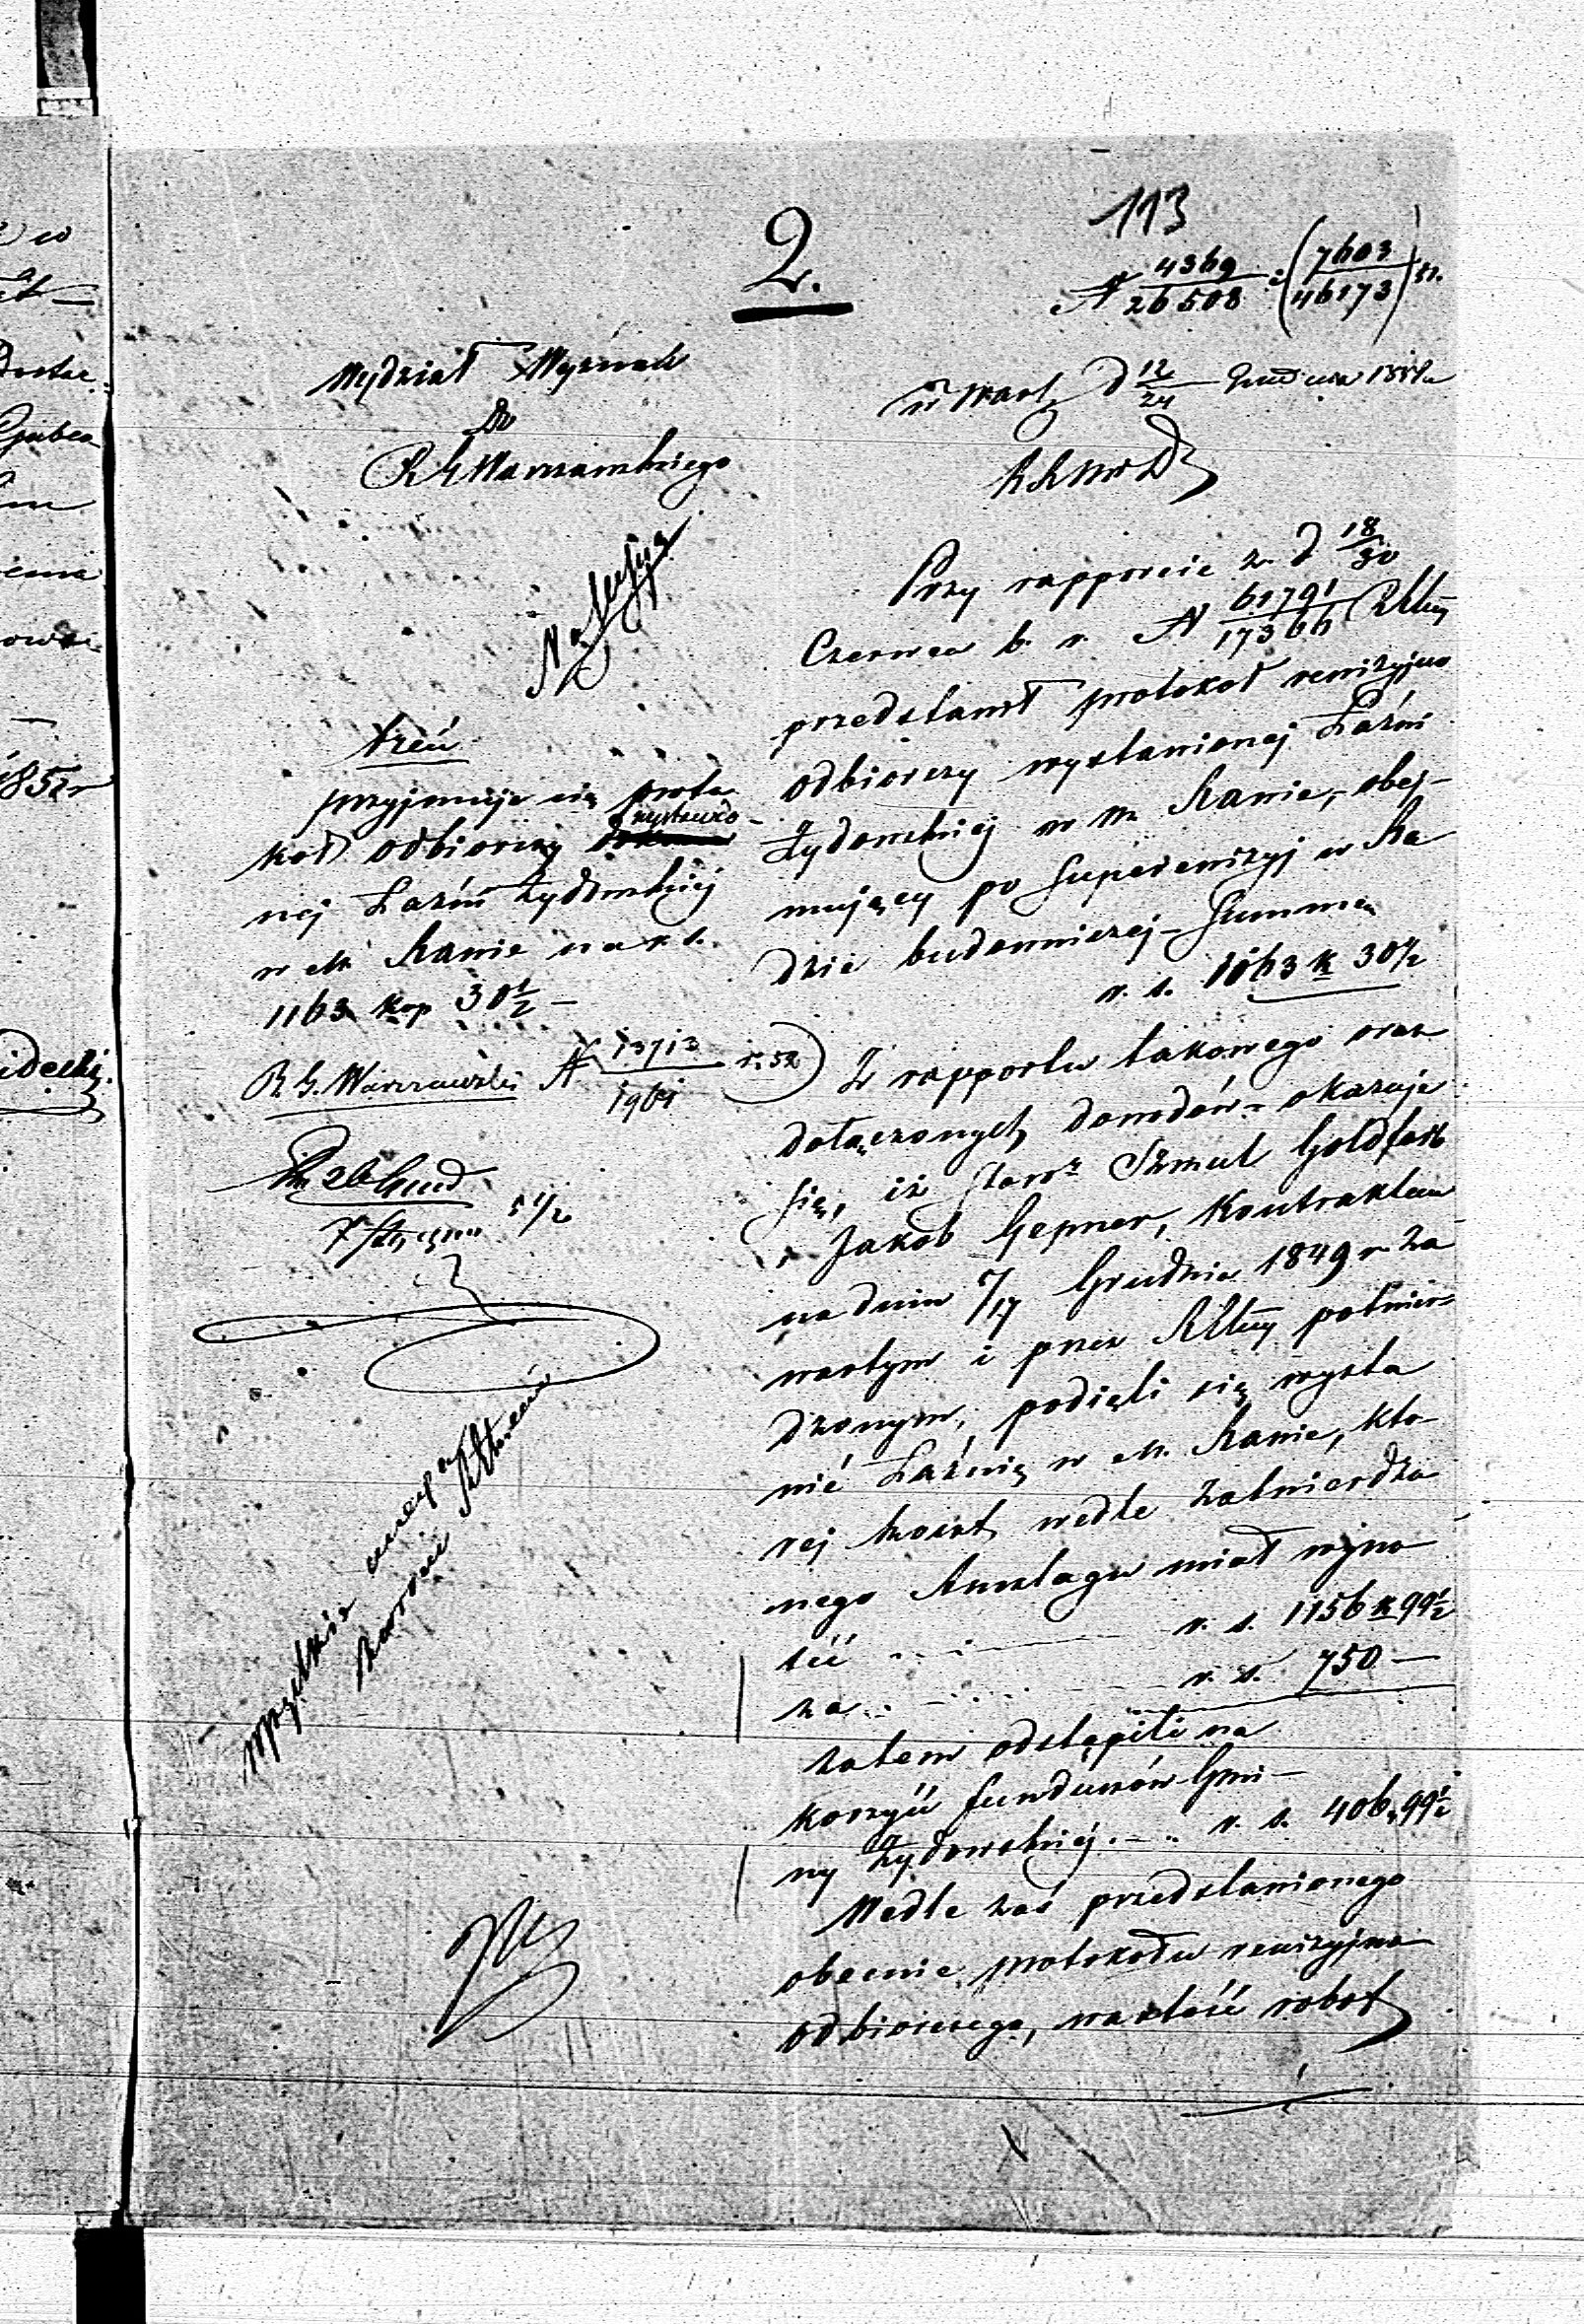 113
2.
N 4369/26508 : (7603/46173)
Wydział Wyznań
Do
R. G. Warszawskiego
w Warsz. D 12/24 Grudnia
Treść
przyjmuje się proto
koł odbiorczy wystawio-
nej Łaźni Żydowskiej
w M. Rawie na r. s.
1163 kop 30 1/2 -
R. G. Warszawski N 13713/1961 r. 52
Przy rapporcie z d 18/30
Czerwca b. r. N 61791/17366
przedstawił protokoł rewizyjno
odbiorczy wystawionej Łaźni
Żydowskiej w m Rawie, - obej-
mujący po Superewizyi w Ra
dzie budowniczej - Summę
r. s. 1163 k 30 1/2
Z rapportu takowego oraz
dołączonych dowodów - okazuje
się, iż Staroz Szmul Goldfarb
i Jakob Gepner, Kontraktem
na dniu 5/17 Grudnia 1849 r. za
wartym i przez potwier=
dzonym, podięli się wysta
wić Łaźnię w M. Rawie, któ-
rej koszt wedle zatwierdzo
nego Anszlagu miał wyno
sić r. s. 1156 k 99 1/2
za r. s. 750 —
zatem odstąpili na
korzyść funduszów Gmi-
ny Żydowskiej r. s. 406,99 1/2
Wedle zaś przedstawionego
obecnie protokołu rewizyjno
odbiorczego, wartość robot